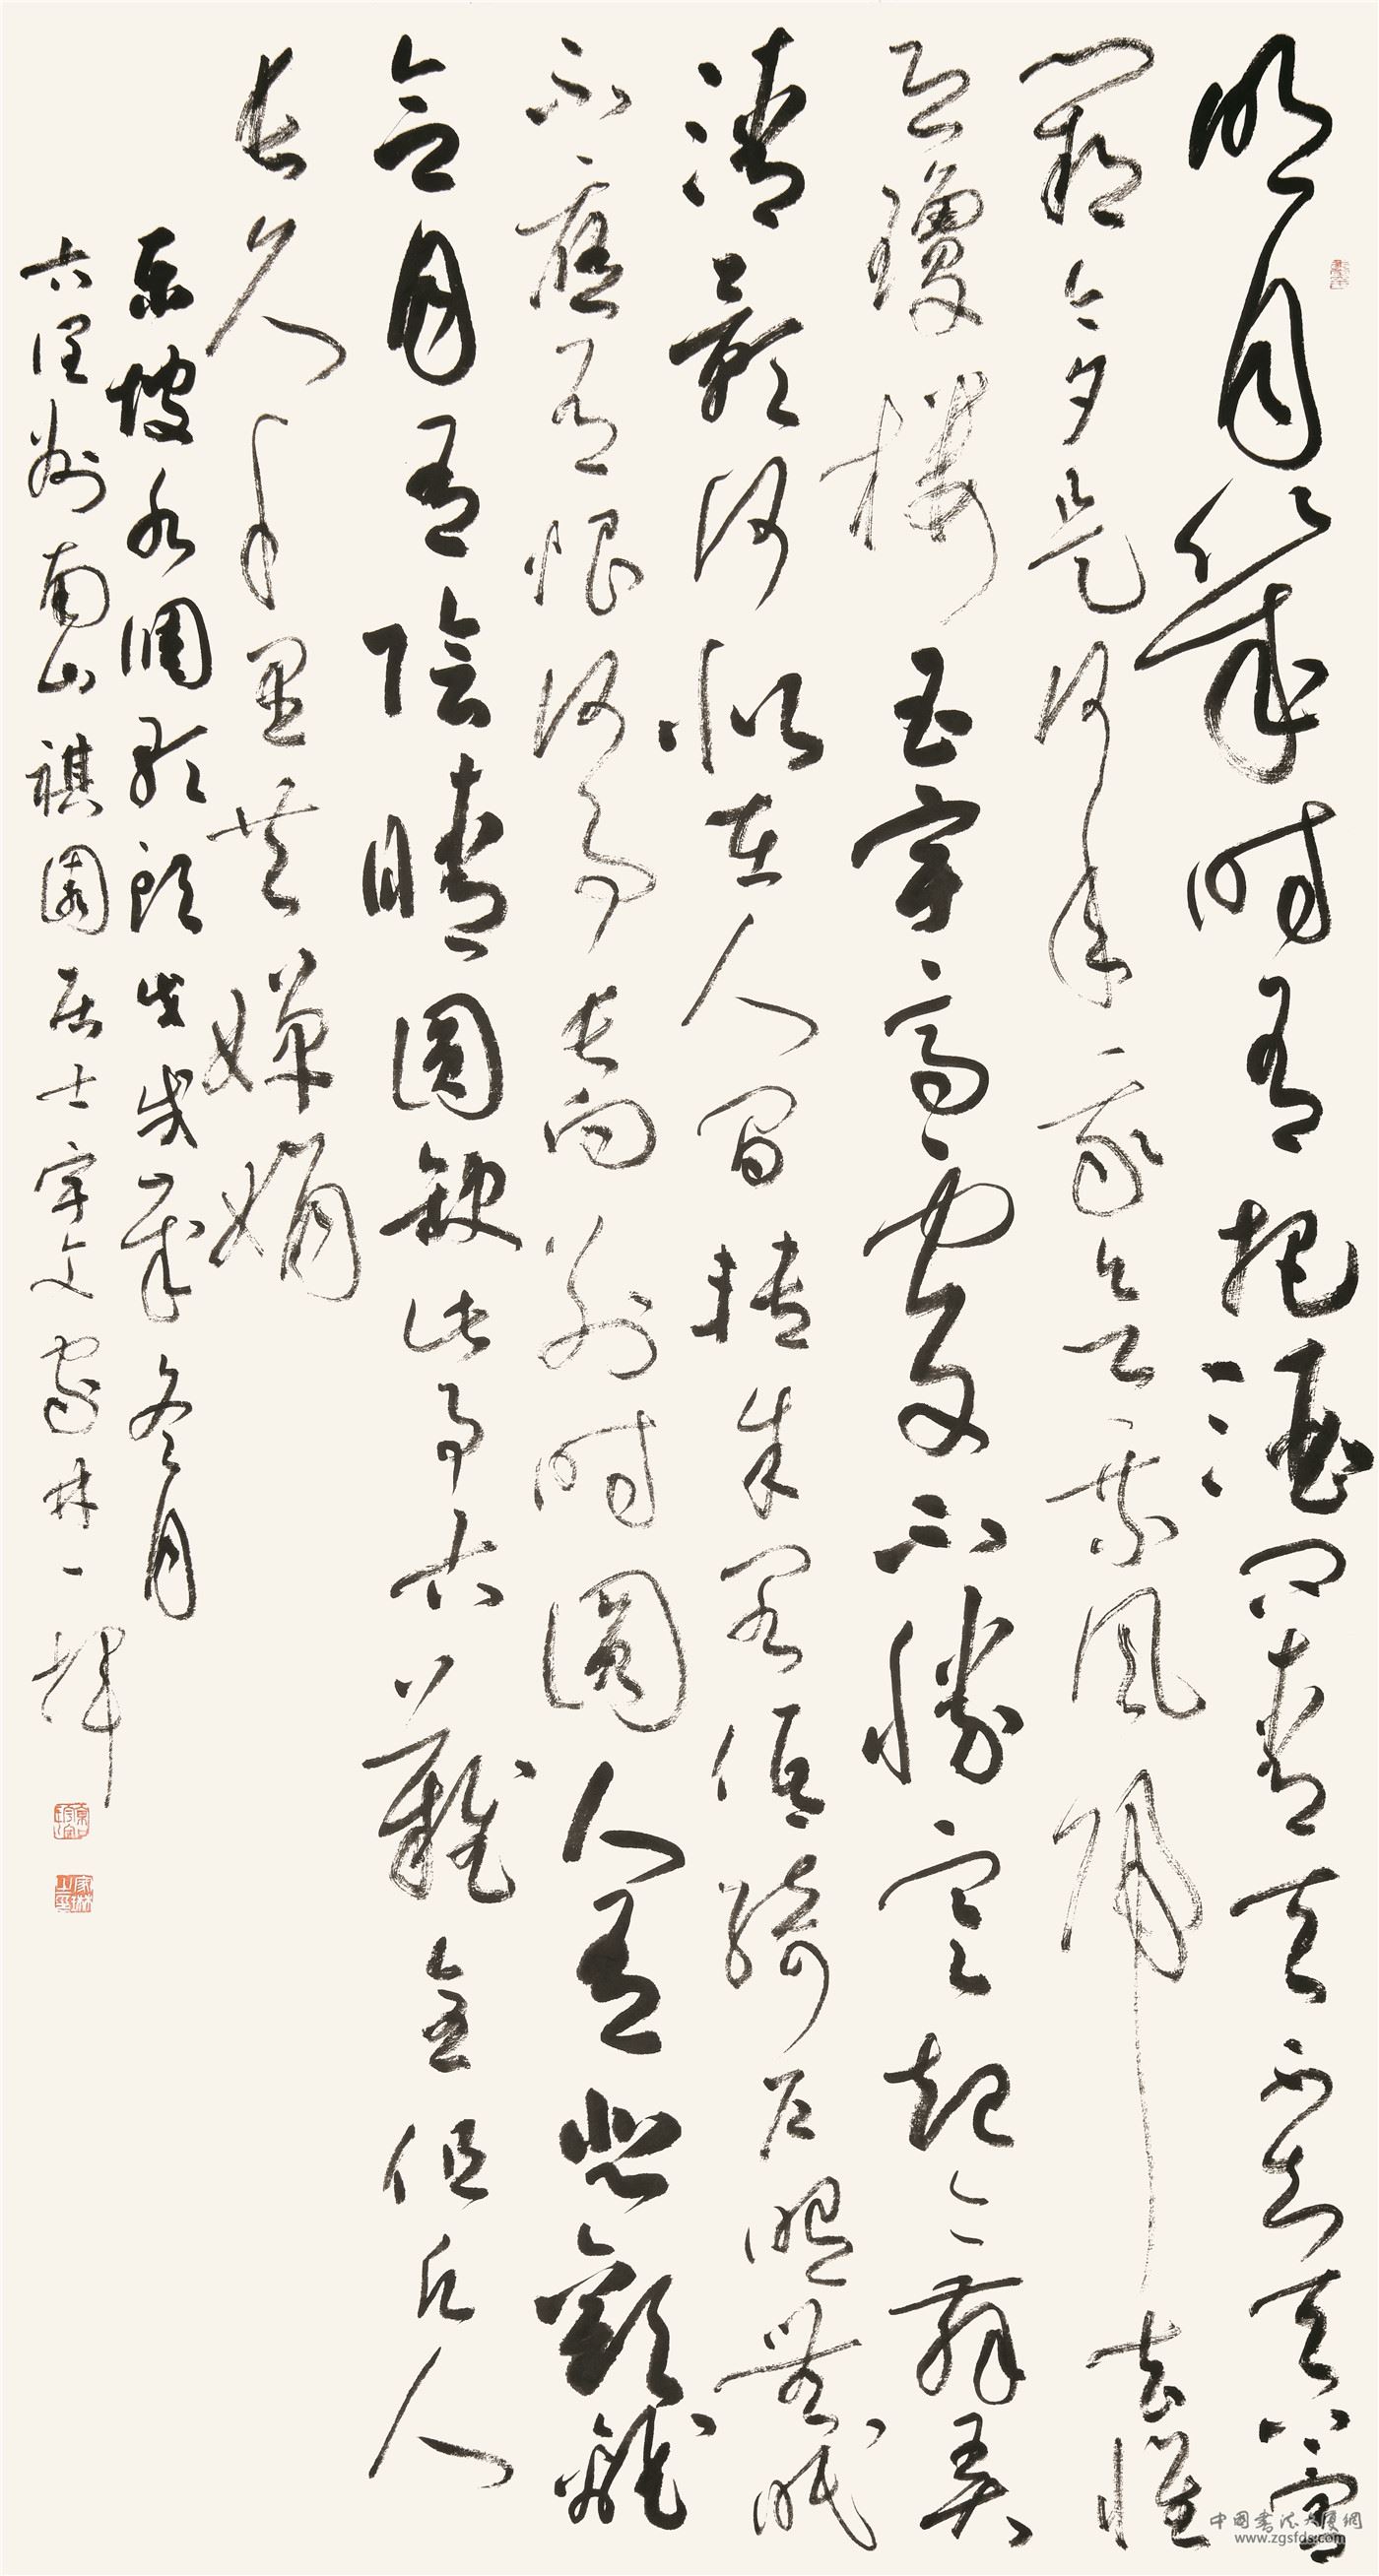 明月幾時有把酒問青天不知天上宮
闕今夕是何年我欲乘風歸去惟
恐瓊樓玉宇高處不勝寒起舞弄
清影何似在人間轉朱閣低綺户照無眠
不應有恨何事長向別時圓人有悲歡離
合月有陰晴圓缺此事古難全但願人
長久千里共嬋娟
東坡水調歌頭戊戌年冬月
古涇州南山祺園居士宇文家林一揮
中國書法大厦網
www.zgsfds.com